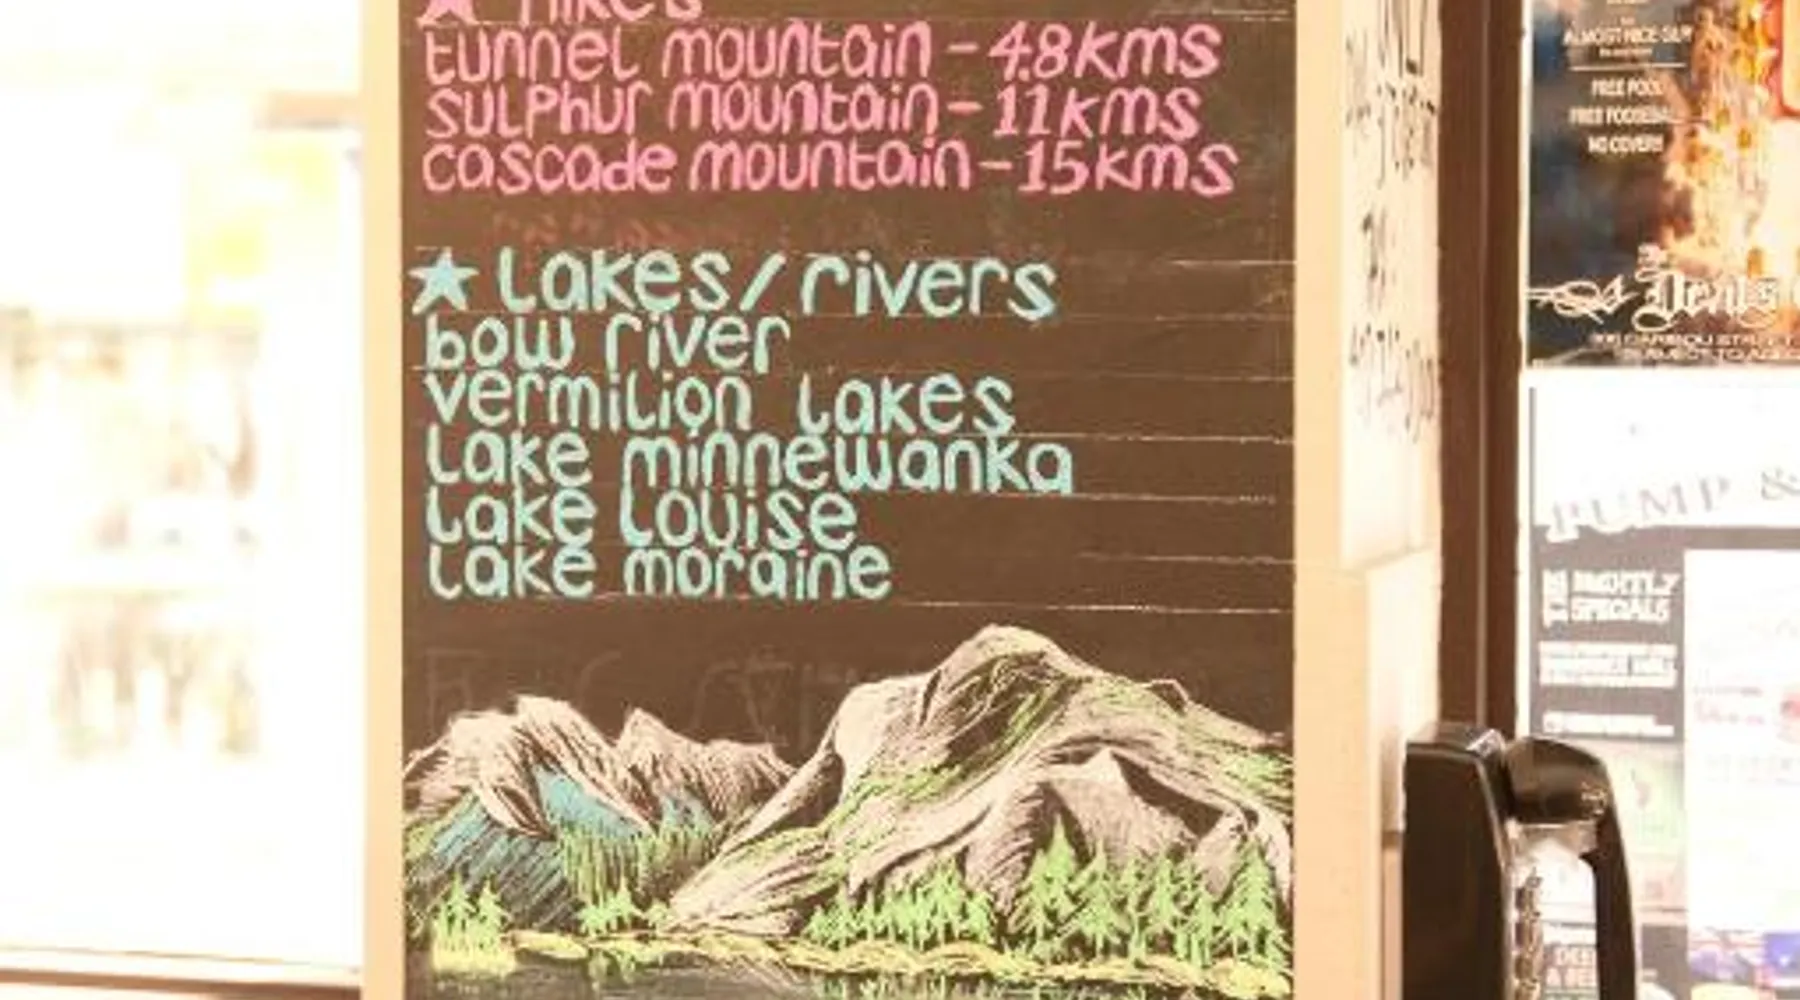 ★ Hikes
tunnel mountain - 4.8kms
sulphur mountain - 11kms
cascade mountain - 15kms
★ Lakes/rivers
bow river
vermilion lakes
Lake minnewanka
Lake Louise
Lake moraine
FREE POOL
FREE FOOSBALL
NO COVER!!
PUMP &
NIGHTLY
SPECIALS